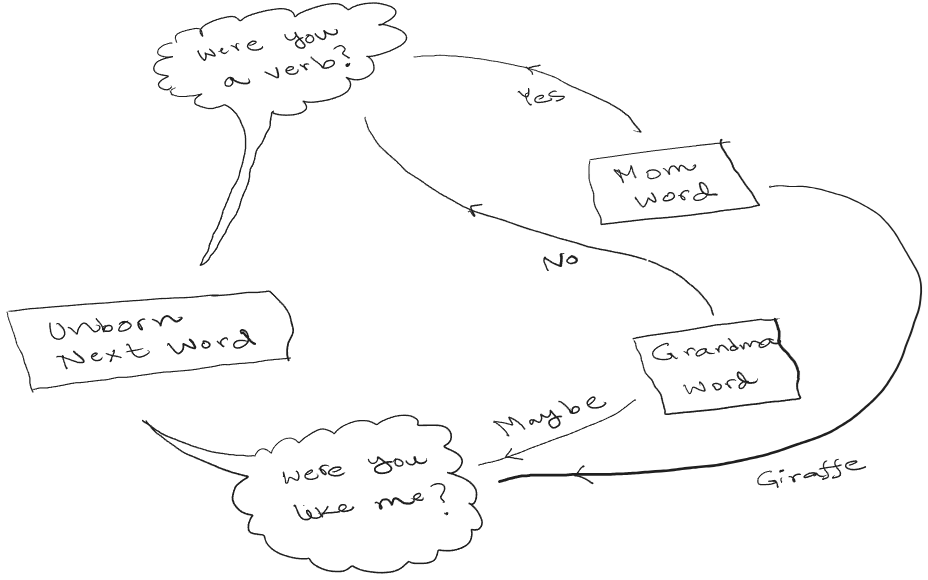 Were you
a verb?
Yes
Mom
Word
No
Unborn
Next Word
Grandma
Word
Maybe
Were you
like me?
Giraffe